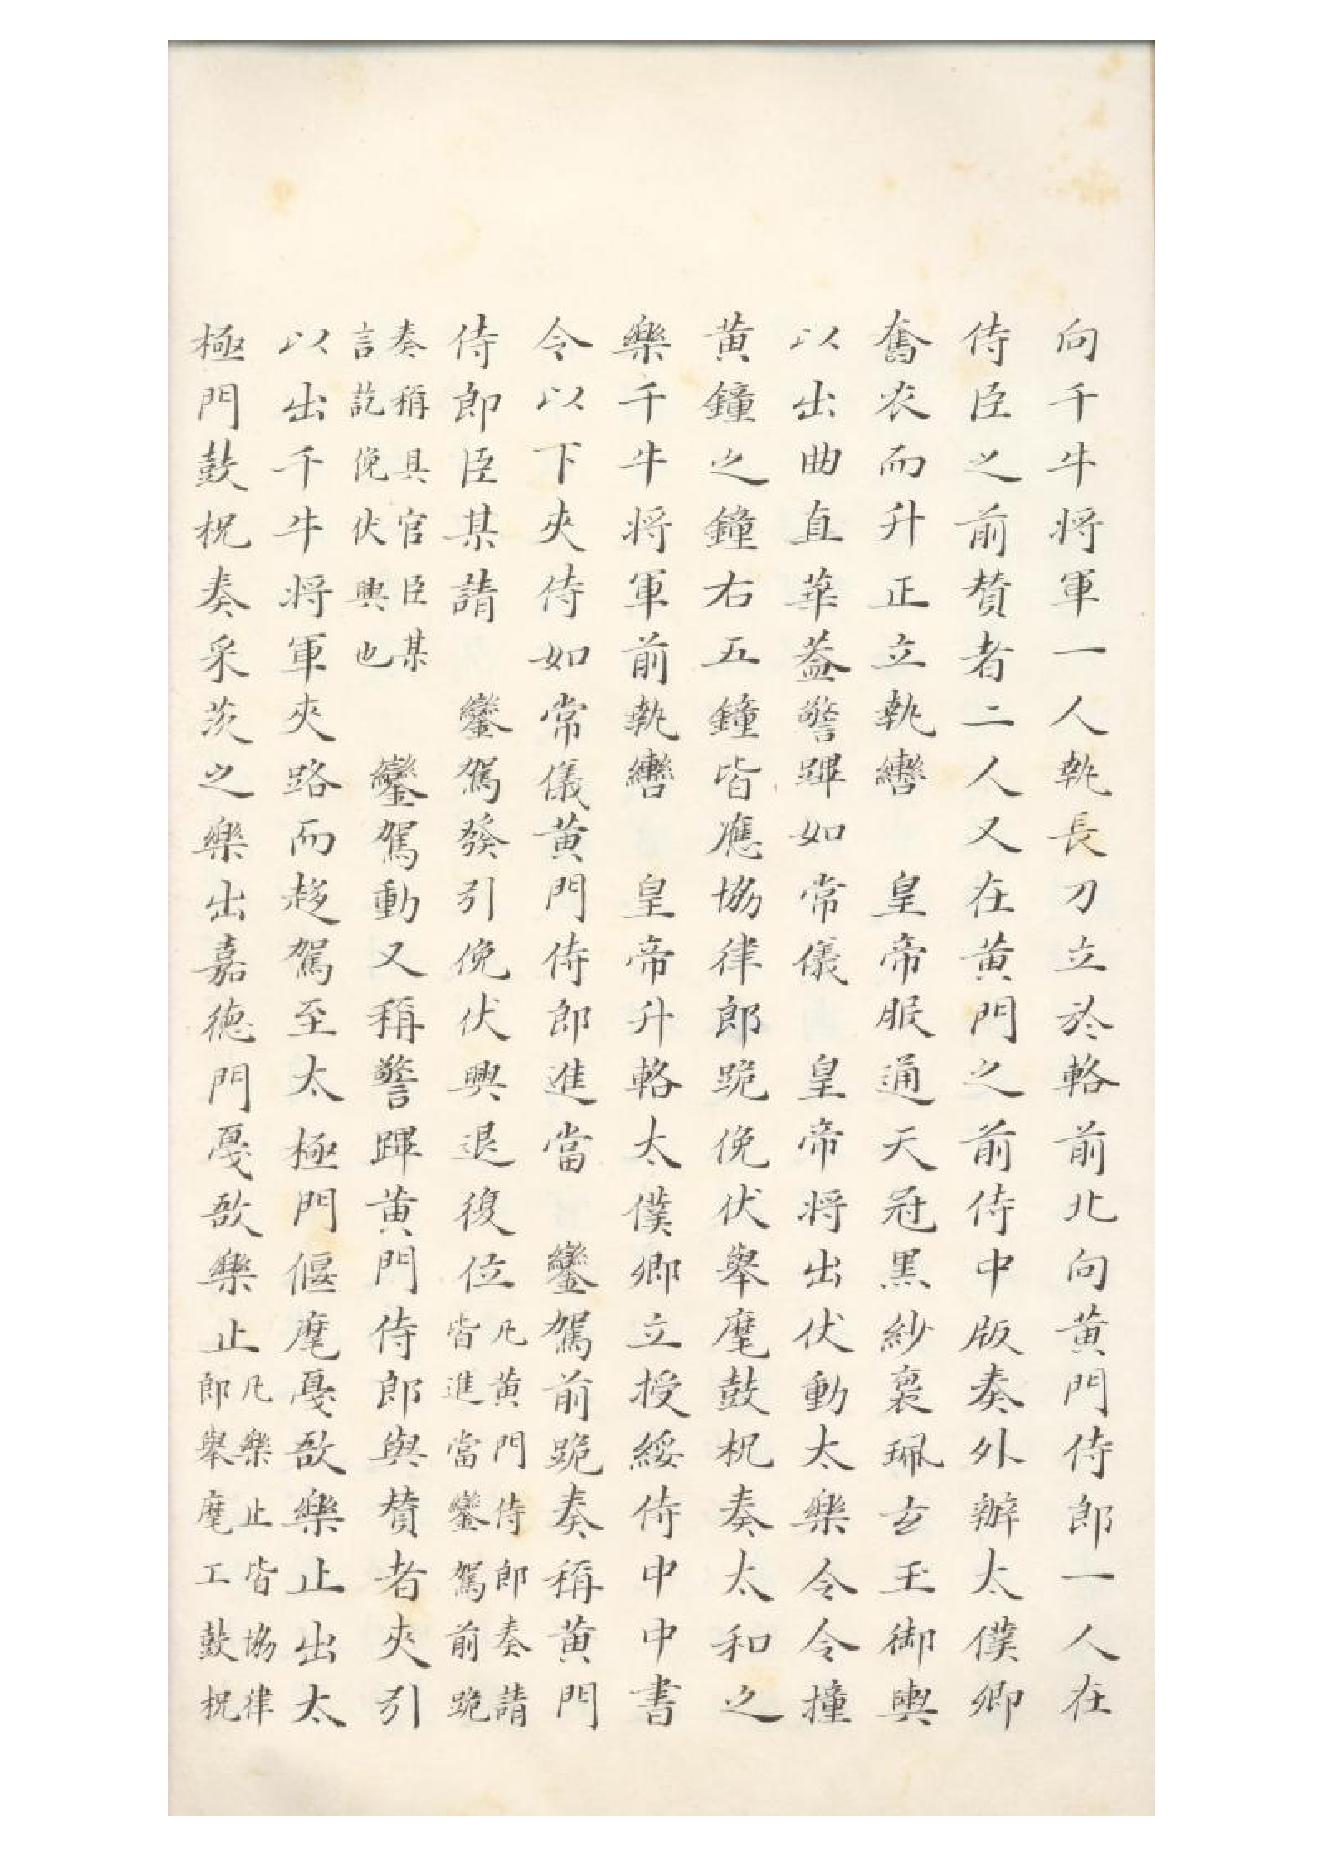 向千牛將軍一人執長刀立於輅前北向黃門侍郎一人在
侍臣之前賛者二人又在黃門之前侍中版奏外辦太僕卿
奮衣而升正立執轡　皇帝服通天冠黑紗裏珮玄玉御輿
以出曲直華蓋警蹕如常儀　皇帝將出伏動太樂令令撞
黃鐘之鐘右五鐘皆應協律郎跪俛伏舉麾鼓柷奏太和之
樂千牛將軍前執轡　皇帝升輅太僕卿立授綏侍中中書
令以下夾侍如常儀黃門侍郎進當　鑾駕前跪奏稱黃門
侍郎臣某請　鑾駕發引俛伏興退復位凡黃門侍郎奏請皆進當鑾駕前跪
奏稱具官臣某言訖俛伏興也　鑾駕動又稱警蹕黃門侍郎與賛者夾引
以出千牛將軍夾路而趍駕至太極門偃麾戛敔樂止出太
極門鼓柷奏采茨之樂出嘉德門戛敔樂止凡樂止皆協律郎舉麾工鼓柷